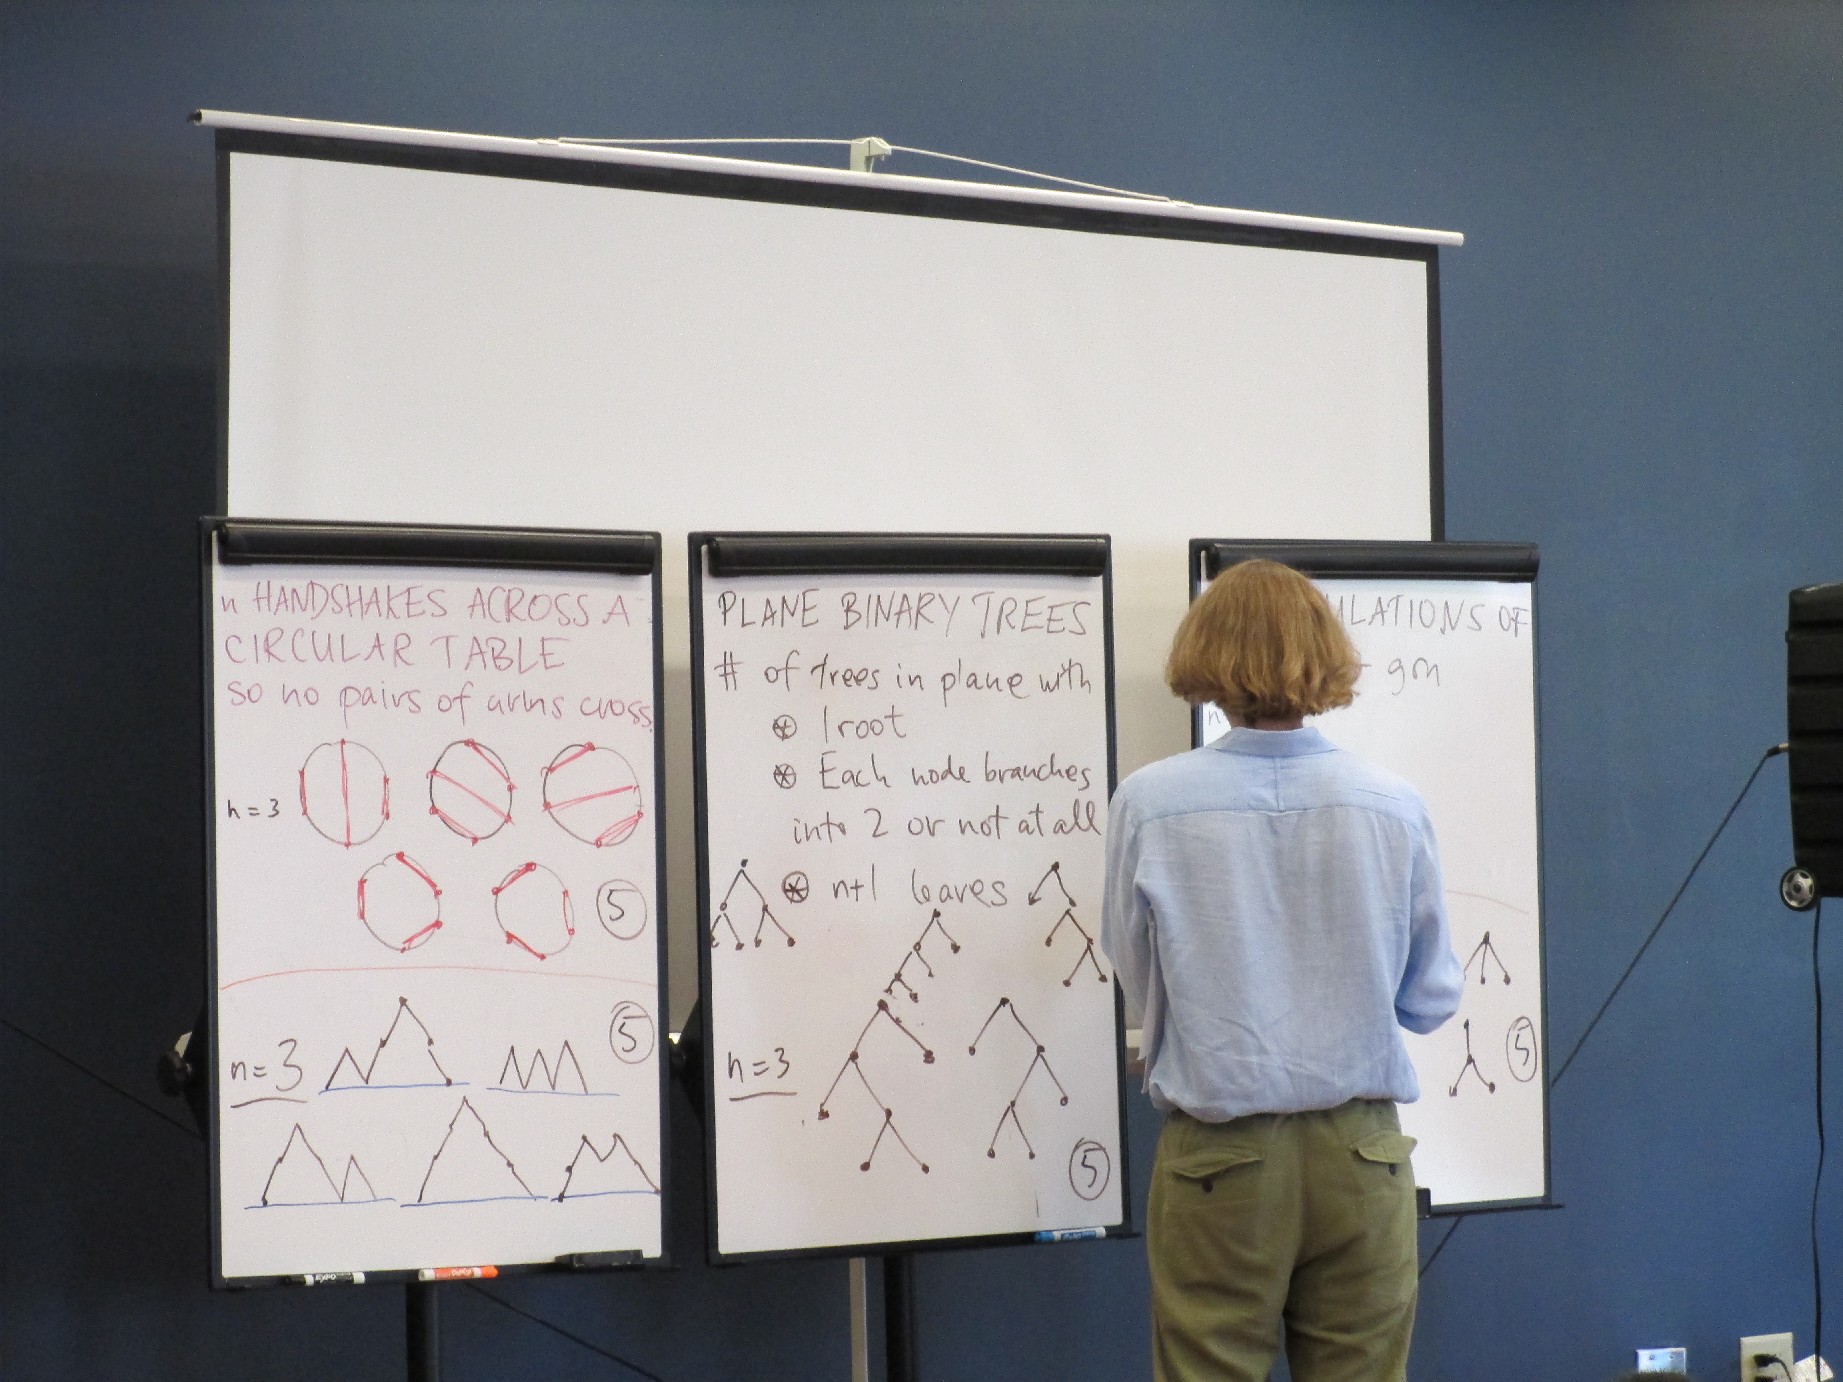 n HANDSHAKES ACROSS A
CIRCULAR TABLE
so no pairs of arms cross.
n=3
5
n=3
5
PLANE BINARY TREES
# of trees in plane with
⊛ 1 root
⊛ Each node branches
into 2 or not at all
⊛ n+1 leaves
n=3
5
ULATIONS OF
gon
n
5
EXPO